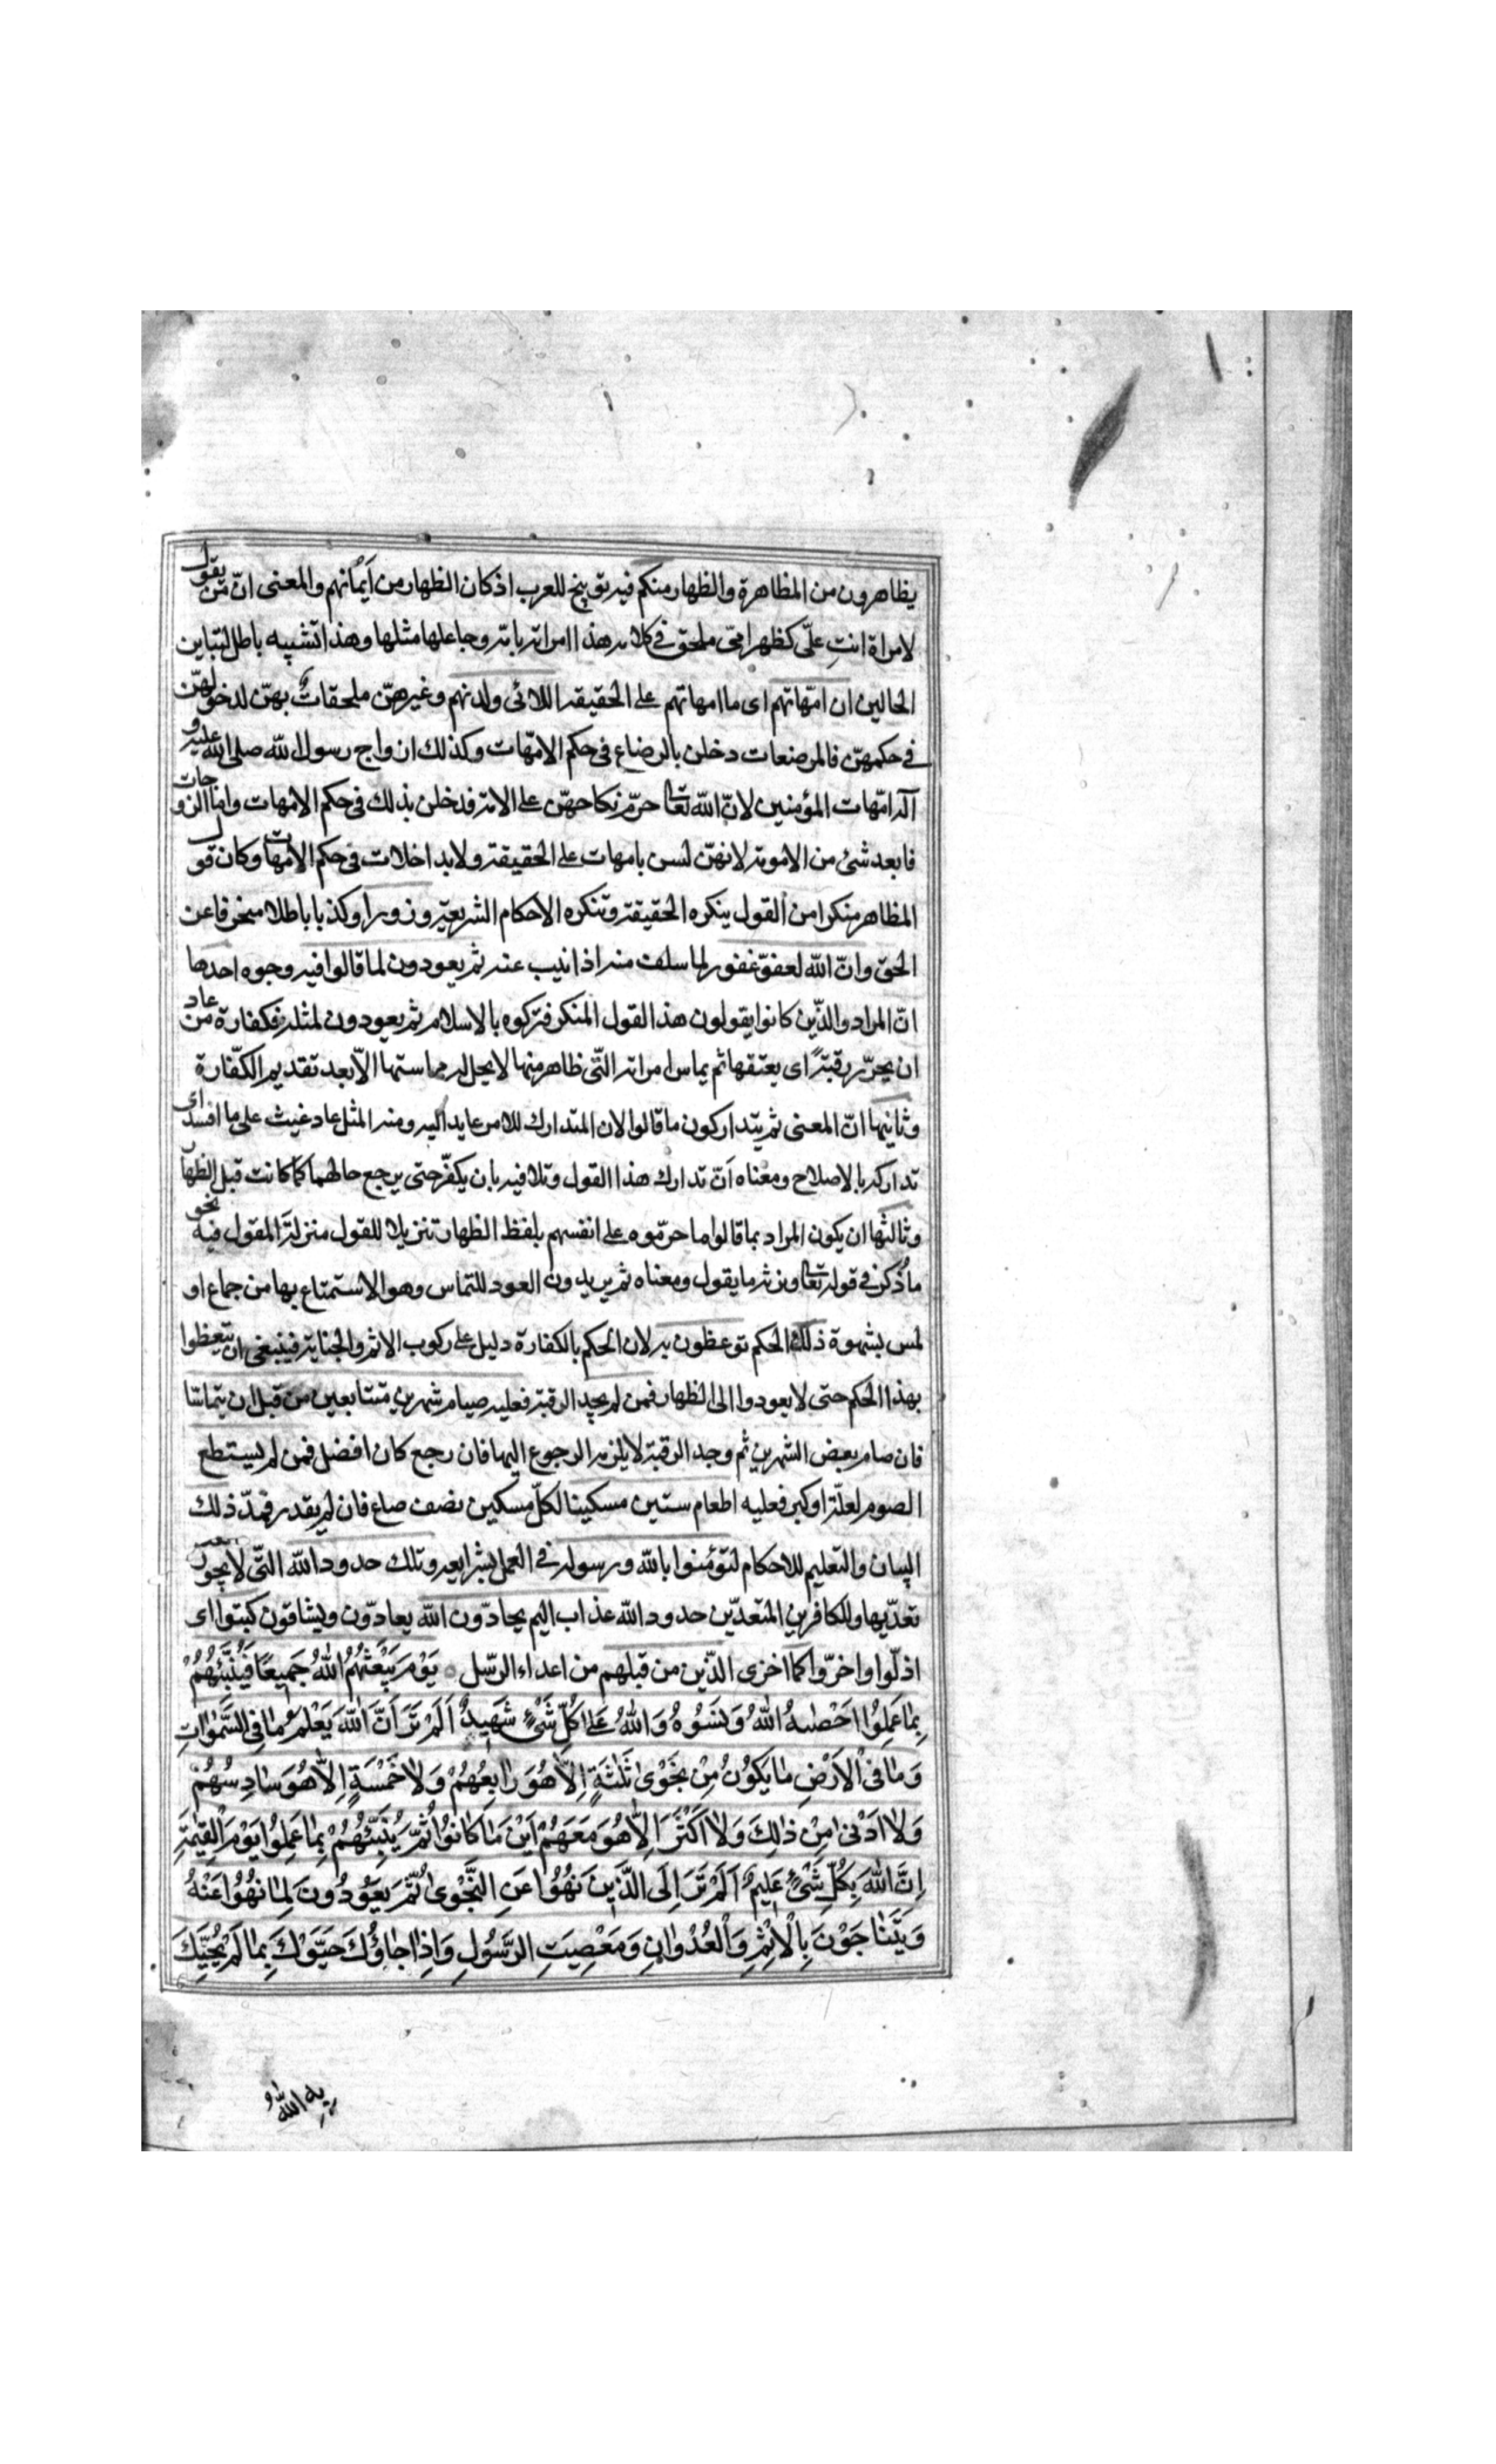 يظاهرون من المظاهرة والظهار منكم فيه توبيخ للعرب اذ كان الظهار من أيمانهم والمعنى انّ من يقول
لامراة انتِ علىّ كظهر امّى ملحق فى كلامه هذا امراته بامّه وجاعلها مثلها وهذا تشبيه باطل لتباين
الحالين ان امّهاتهم اى ما امهاتهم على الحقيقه اللائى ولدنهم وغيرهنّ ملحقاتٌ بهنّ لدخولهنّ
فى حكمهنّ فالمرضعات دخلن بالرضاع فى حكم الامّهات وكذلك ازواج رسول الله صلى الله عليه و
آله امّهات المؤمنين لانّ الله تعالى حرّم نكاحهنّ على الامّة فدخلن بذلك فى حكم الامّهات وامّا الزوجات
فابعد شئ من الامومة لانهنّ لسن بامهات على الحقيقة ولا بداخلات فى حكم الامهات وكان قول
المظاهر منكرا من القول ينكره الحقيقة وتنكره الاحكام الشريعيّة وزورا وكذبا باطلا منحرفا عن
الحق وانّ الله لعفوّ غفور لما سلف منه اذا انيب عنه ثم يعودون لما قالوا فيه وجوه احدها
انّ المراد والذّين كانوا يقولون هذا القول المنكر فتركوه بالاسلام ثم يعودون لمثله فكفارة من عاد
ان يحرّر رقبةً اى يعتقها ثم يماس امراته التّى ظاهر منها لا يحل له مماستها الاّ بعد تقديم الكفّارة
وثانيها انّ المعنى ثم يتداركون ما قالوا لان المتدارك للامر عايد اليه ومنه المثل عاد غيث على ما افسد اى
تداركه بالاصلاح ومعناه أنّ تدارك هذا القول وتلافيه بان يكفّر حتى يرجع حالهما كما كانت قبل الظهار
وثالثها ان يكون المراد بما قالوا ما حرّموه على انفسهم بلفظ الظهار تنزيلا للقول منزلة المقول فيه نحو
ما ذكر فى قوله تعالى ونرثه ما يقول ومعناه ثم يريدون العود للتماس وهو الاستمتاع بها من جماع او
لمس بشهوة ذلك الحكم توعظون به لان الحكم بالكفارة دليل على ركوب الاثم والجناية فينبغى ان تتعظوا
بهذا الحكم حتى لا يعودوا الى الظهار فمن لم يجد الرقبة فعليه صيام شهرين متتابعين من قبل ان يتماسّا
فان صام بعض الشهرين ثم وجد الرقبة لا يلزمه الرجوع اليها فان رجع كان افضل فمن لم يستطع
الصوم لعلّة او كبر فعليه اطعام ستين مسكينا لكلّ مسكين نصف صاع فان لم يقدر فمدّ ذلك
البيان والتعليم للاحكام لتؤمنوا بالله ورسوله فى العمل بشرايعه وتلك حدود الله التّى لا يجوز
تعدّيها وللكافرين المتعدّين حدود الله عذاب اليم يحادّون الله يعادّون ويشاقون كبتوا اى
اذلّوا واخزوا كما اخزى الذّين من قبلهم من اعداء الرّسل يَوْمَ يَبْعَثُهُمُ اللهُ جَمِيعًا فَيُنَبِّئُهُمْ
بِمَا عَمِلُوا اَحْصٰيهُ اللهُ وَنَسُوهُ وَاللهُ عَلىٰ كُلِّ شَىْءٍ شَهِيدٌ اَلَمْ تَرَ اَنَّ اللهَ يَعْلَمُ مَا فِى السَّمٰوَاتِ
وَمَا فِى الْاَرْضِ مَا يَكُونُ مِنْ نَجْوىٰ ثَلٰثَةٍ اِلّا هُوَ رَابِعُهُمْ وَلَا خَمْسَةٍ اِلّا هُوَ سَادِسُهُمْ
وَلَا اَدْنىٰ مِنْ ذٰلِكَ وَلَا اَكْثَرَ اِلّا هُوَ مَعَهُمْ اَيْنَ مَا كَانُوا ثُمَّ يُنَبِّئُهُمْ بِمَا عَمِلُوا يَوْمَ الْقِيٰمَةِ
اِنَّ اللهَ بِكُلِّ شَىْءٍ عَلِيمٌ اَلَمْ تَرَ اِلَى الَّذِينَ نُهُوا عَنِ النَّجْوىٰ ثُمَّ يَعُودُونَ لِمَا نُهُوا عَنْهُ
وَيَتَنَاجَوْنَ بِالْاِثْمِ وَالْعُدْوَانِ وَمَعْصِيَتِ الرَّسُولِ وَاِذَا جَاؤُكَ حَيَّوْكَ بِمَا لَمْ يُحَيِّكَ
به الله و